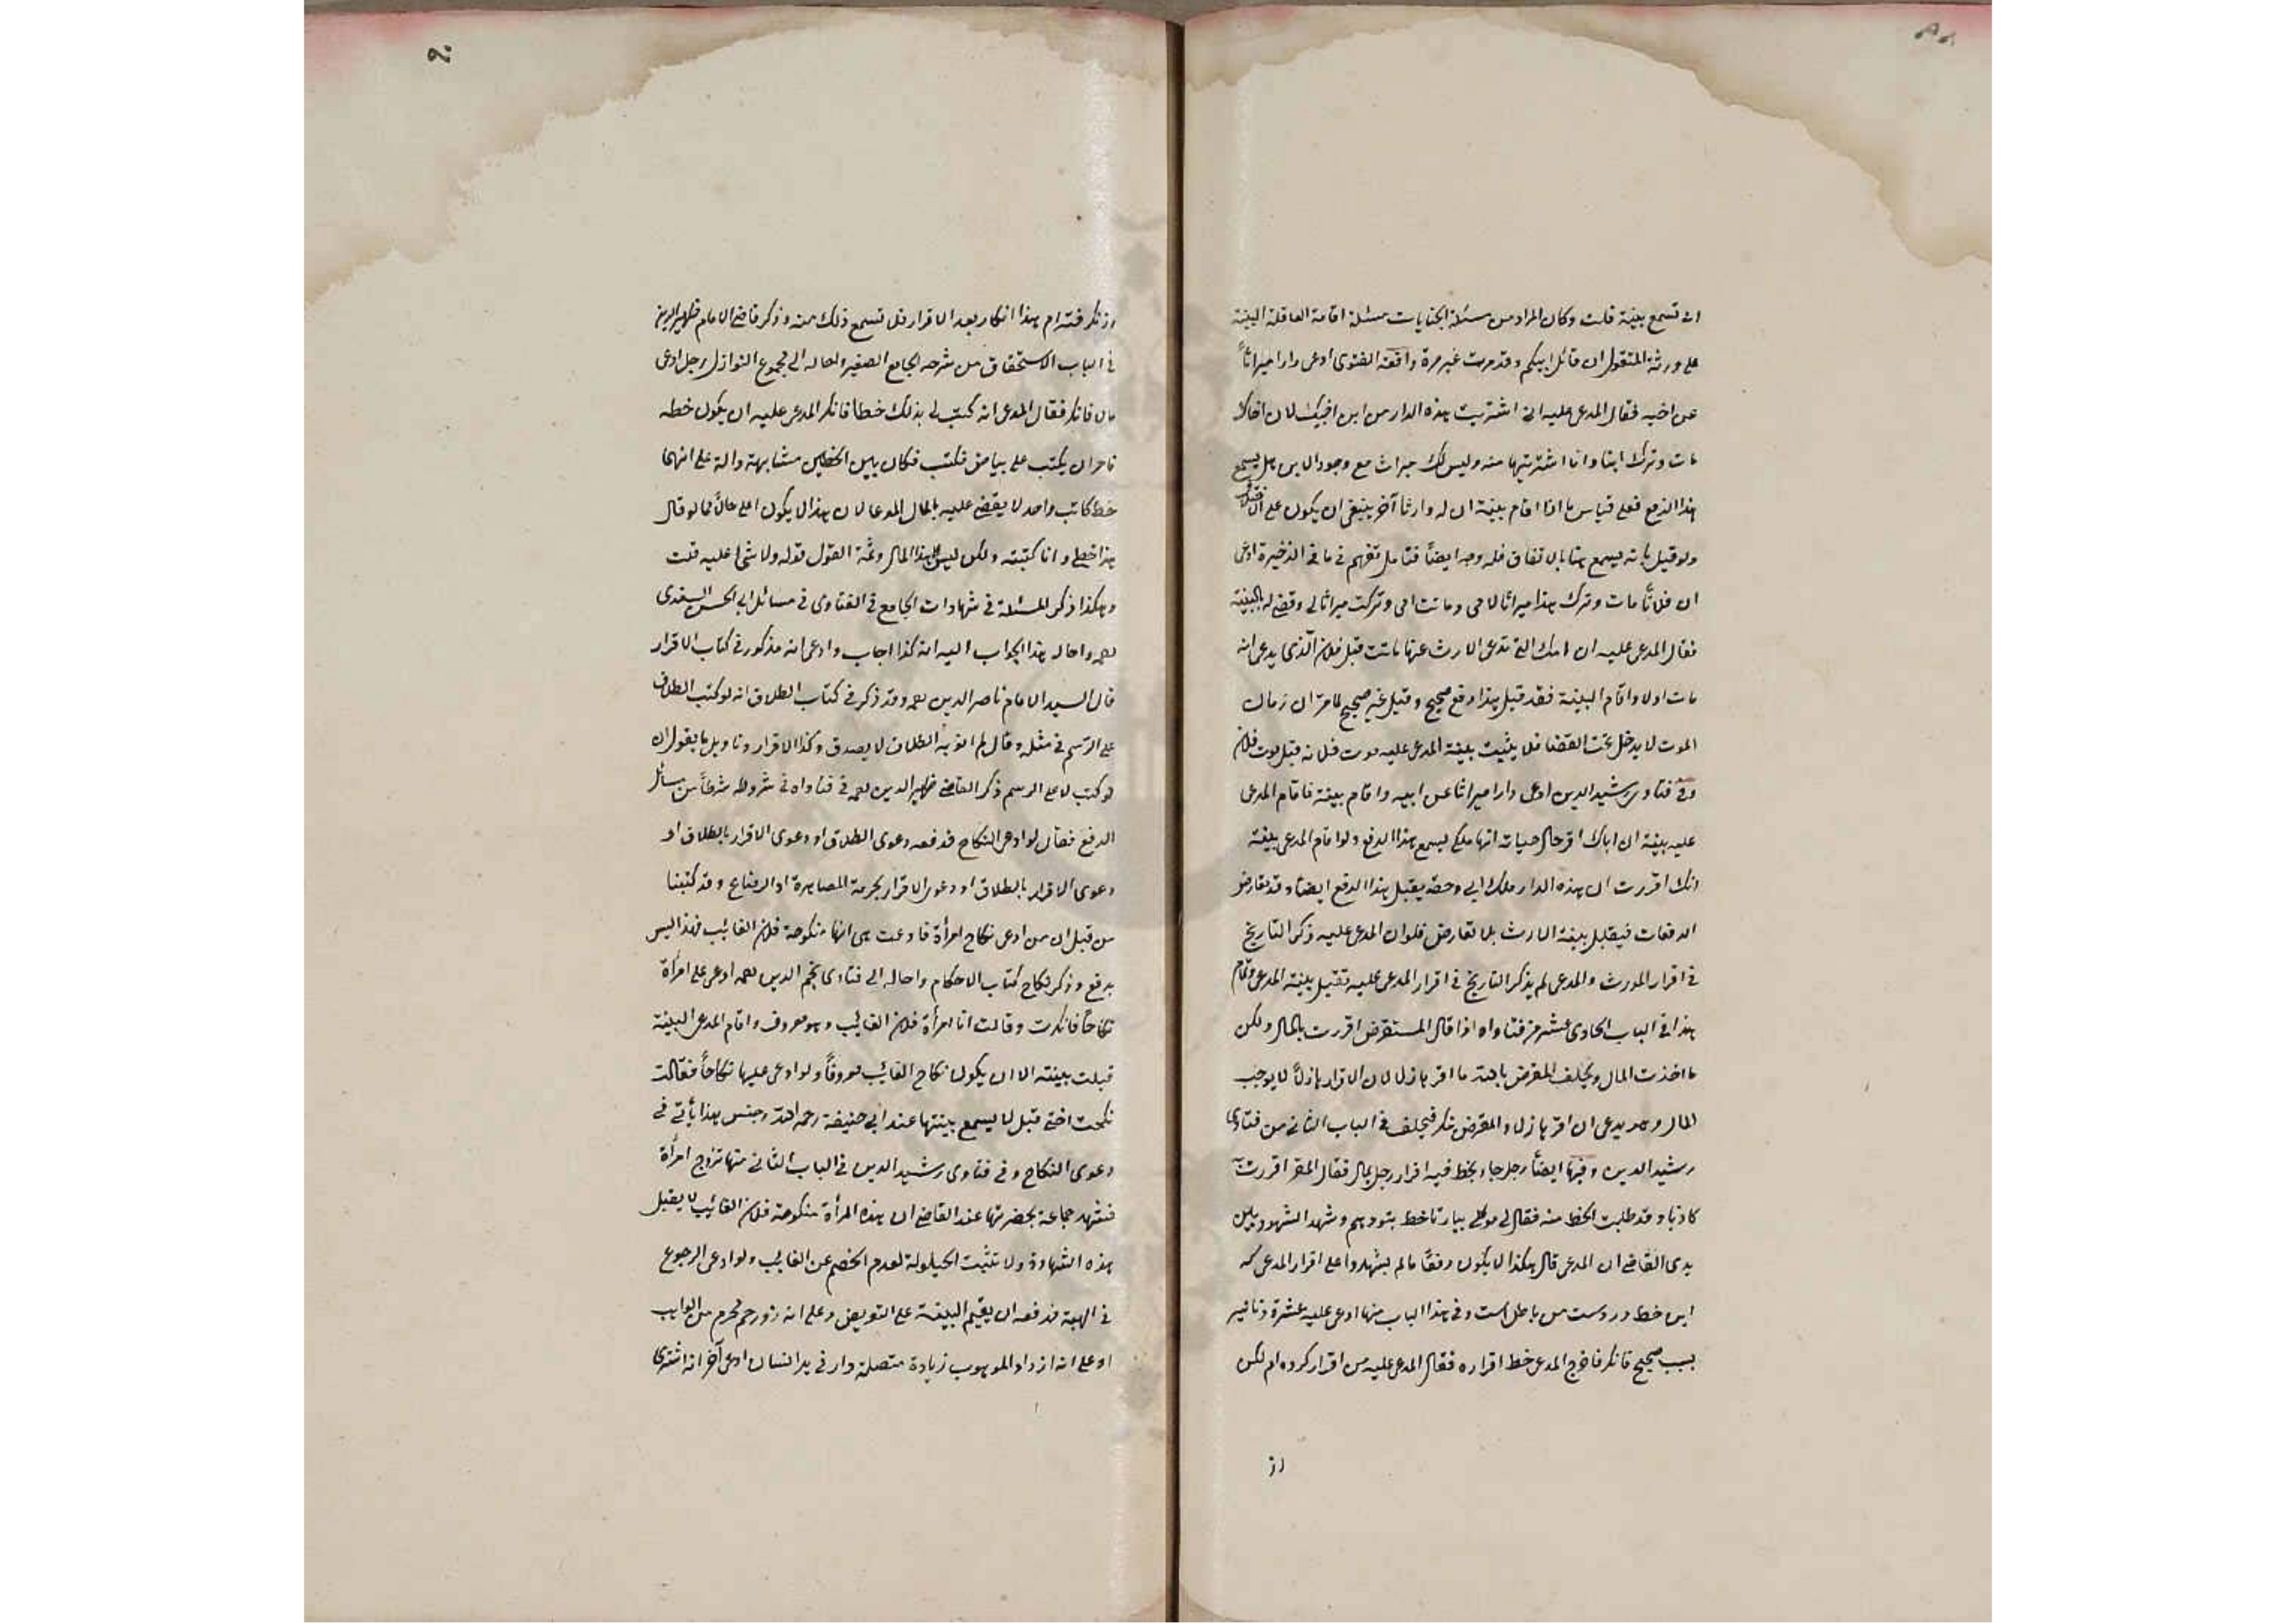 انى تسمع بينة قلت وكان المراد من مسئلة الجنايات مسئلة اقامة العاقلة البينة
على ورثة المقتول ان قاتل ابيكم وقد مرت غير مرة واقعة الفتوى ادعى دارا ميراثاً
عن اخيه فقال المدعى عليه انى اشتريت هذه الدار من ابن اخيك لان اخاك
مات وترك ابنا وانا اشتريتها منه وليس لك ميراث مع وجود الابن هل يسمع
هذا الدفع فعلى قياس ما اذا اقام بينة ان له وارثا آخر ينبغى ان يكون على
ولو قيل بانه يسمع هنا بالاتفاق فله وجه ايضاً فتامل تفهم فى ما فى الذخيرة ادعى
ان فلانًا مات وترك هذا ميراثا لامى وماتت امى وتركت ميراثا لى وقضى له بالبينة
فقال المدعى عليه ان امك التى تدعى الارث عنها ماتت قبل فلان الذى يدعى انه
مات اولا واقام البينة فقد قيل هذا دفع صحيح وقيل غير صحيح لما مر ان زمان
الموت لا يدخل تحت القضا فلا يثبت بينة المدعى عليه موت فلانه قبل موت فلان
وفى فتاوى رشيد الدين ادعى دارا ميراثا عن ابيه واقام بينة فاقام المدعى
عليه بينة ان اباك اقر حال حياته انها ملكى يسمع هذا الدفع ولو اقام المدعى بينة
انك اقررت ان هذه الدار ملك ابى وحقه يقبل هذا الدفع ايضا وقد تعارض
الدفعات فيقبل بينة الارث بلا تعارض فلو ان المدعى عليه ذكر التاريخ
فى اقرار المورث والمدعى لم يذكر التاريخ فى اقرار المدعى عليه تقبل بينة المدعى وتمام
هذا فى الباب الحادى عشر من فتاواه اذا قال المستقرض اقررت بالمال ولكن
ما اخذت المال ويحلف المقرض بالله ما اقر هازلا لان الاقرار هازلًا لا يوجب
المال وهو يدعى ان اقر هازلا والمقرض ينكر فيحلف فى الباب الثانى من فتاوى
رشيد الدين وفيها ايضاً رجل جاء بخط فيه اقرار رجل بمال فقال المقر اقررت
كاذبا وقد طلبت الخط منه فقال لى موكلى بيار تا خط بتو دهم وشهد الشهود بين
يدى القاضى ان المدعى قال هكذا لا يكون دفعًا مالم يشهدوا على اقرار المدعى كه
اين خط در دست من باطل است وفى هذا الباب منها ادعى عليه عشرة دنانير
بسبب صحيح فانكر فاخرج المدعى خط اقراره فقال المدعى عليه من اقرار كرده ام لكن
از
٩٠
زنكر فته ام هذا انكار بعد الاقرار فلا تسمع ذلك منه وذكر قاضى الامام ظهير الدين
فى الباب الاستحقاق من شرحه الجامع الصغير واحاله الى مجموع النوازل رجل ادعى
مالا فانكر فقال المدعى انه كتب لى بذلك خطا فانكر المدعى عليه ان يكون خطه
فامر ان يكتب على بياض فكتب فكان بين الخطين مشابهة دالة على انهما
خط كاتب واحد لا يقضى عليه بالمال المدعا لان هذا لا يكون اعلى حالًا مما لو قال
هذا خطى وانا كتبته ولكن ليس على هذا المال وثمة القول قوله ولا شئ عليه قلت
وهكذا ذكر المسئلة فى شهادات الجامع فى الفتاوى فى مسائل ابى الحسن السغدى
رحمه واحاله هذا الجواب اليه انه كذا اجاب وادعى انه مذكور فى كتاب الاقرار
قال السيد الامام ناصر الدين رحمه وقد ذكر فى كتاب الطلاق انه لو كتب الطلاق
على الرسم فى مثله وقال لم انو به الطلاق لا يصدق وكذا الاقرار وتاويل ما يقول ان
لو كتب لا على الرسم ذكر القاضى ظهير الدين رحمه فى فتاواه فى شروطه شرطًا من مسائل
الدفع فقال لو ادعى النكاح فدفعه دعوى الطلاق او دعوى الاقرار بالطلاق او
دعوى الاقرار بالطلاق او دعوى الاقرار بحرمة المصاهرة او الرضاع وقد كتبنا
من قبل ان من ادعى نكاح امرأة فادعت هى انها منكوحة فلان الغائب فهذا ليس
بدفع وذكر نكاح كتاب الاحكام واحاله الى فتاوى نجم الدين رحمه ادعى على امرأة
نكاحًا فانكرت وقالت انا امرأة فلان الغائب وهو معروف واقام المدعى البينة
قبلت بينته الا ان يكون نكاح الغائب معروفًا ولو ادعى عليها نكاحاً فقالت
نكحت اختى قبل لا يسمع بينتها عند ابى حنيفة رحمه الله وجنس هذا يأتى فى
دعوى النكاح وفى فتاوى رشيد الدين فى الباب الثانى منها تزوج امرأة
فشهد جماعة بحضرتها عند القاضى ان هذه المرأة منكوحة فلان الغائب لا يقبل
هذه الشهادة ولا تثبت الحيلولة لعدم الخصم عن الغائب ولو ادعى الرجوع
فى الهبة فدفعه ان يقيم البينة على التعويض وعلى انه ذو رحم محرم من الواهب
او على انه ازداد الموهوب زيادة متصلة دار فى يد انسان ادعى آخر انه اشترى